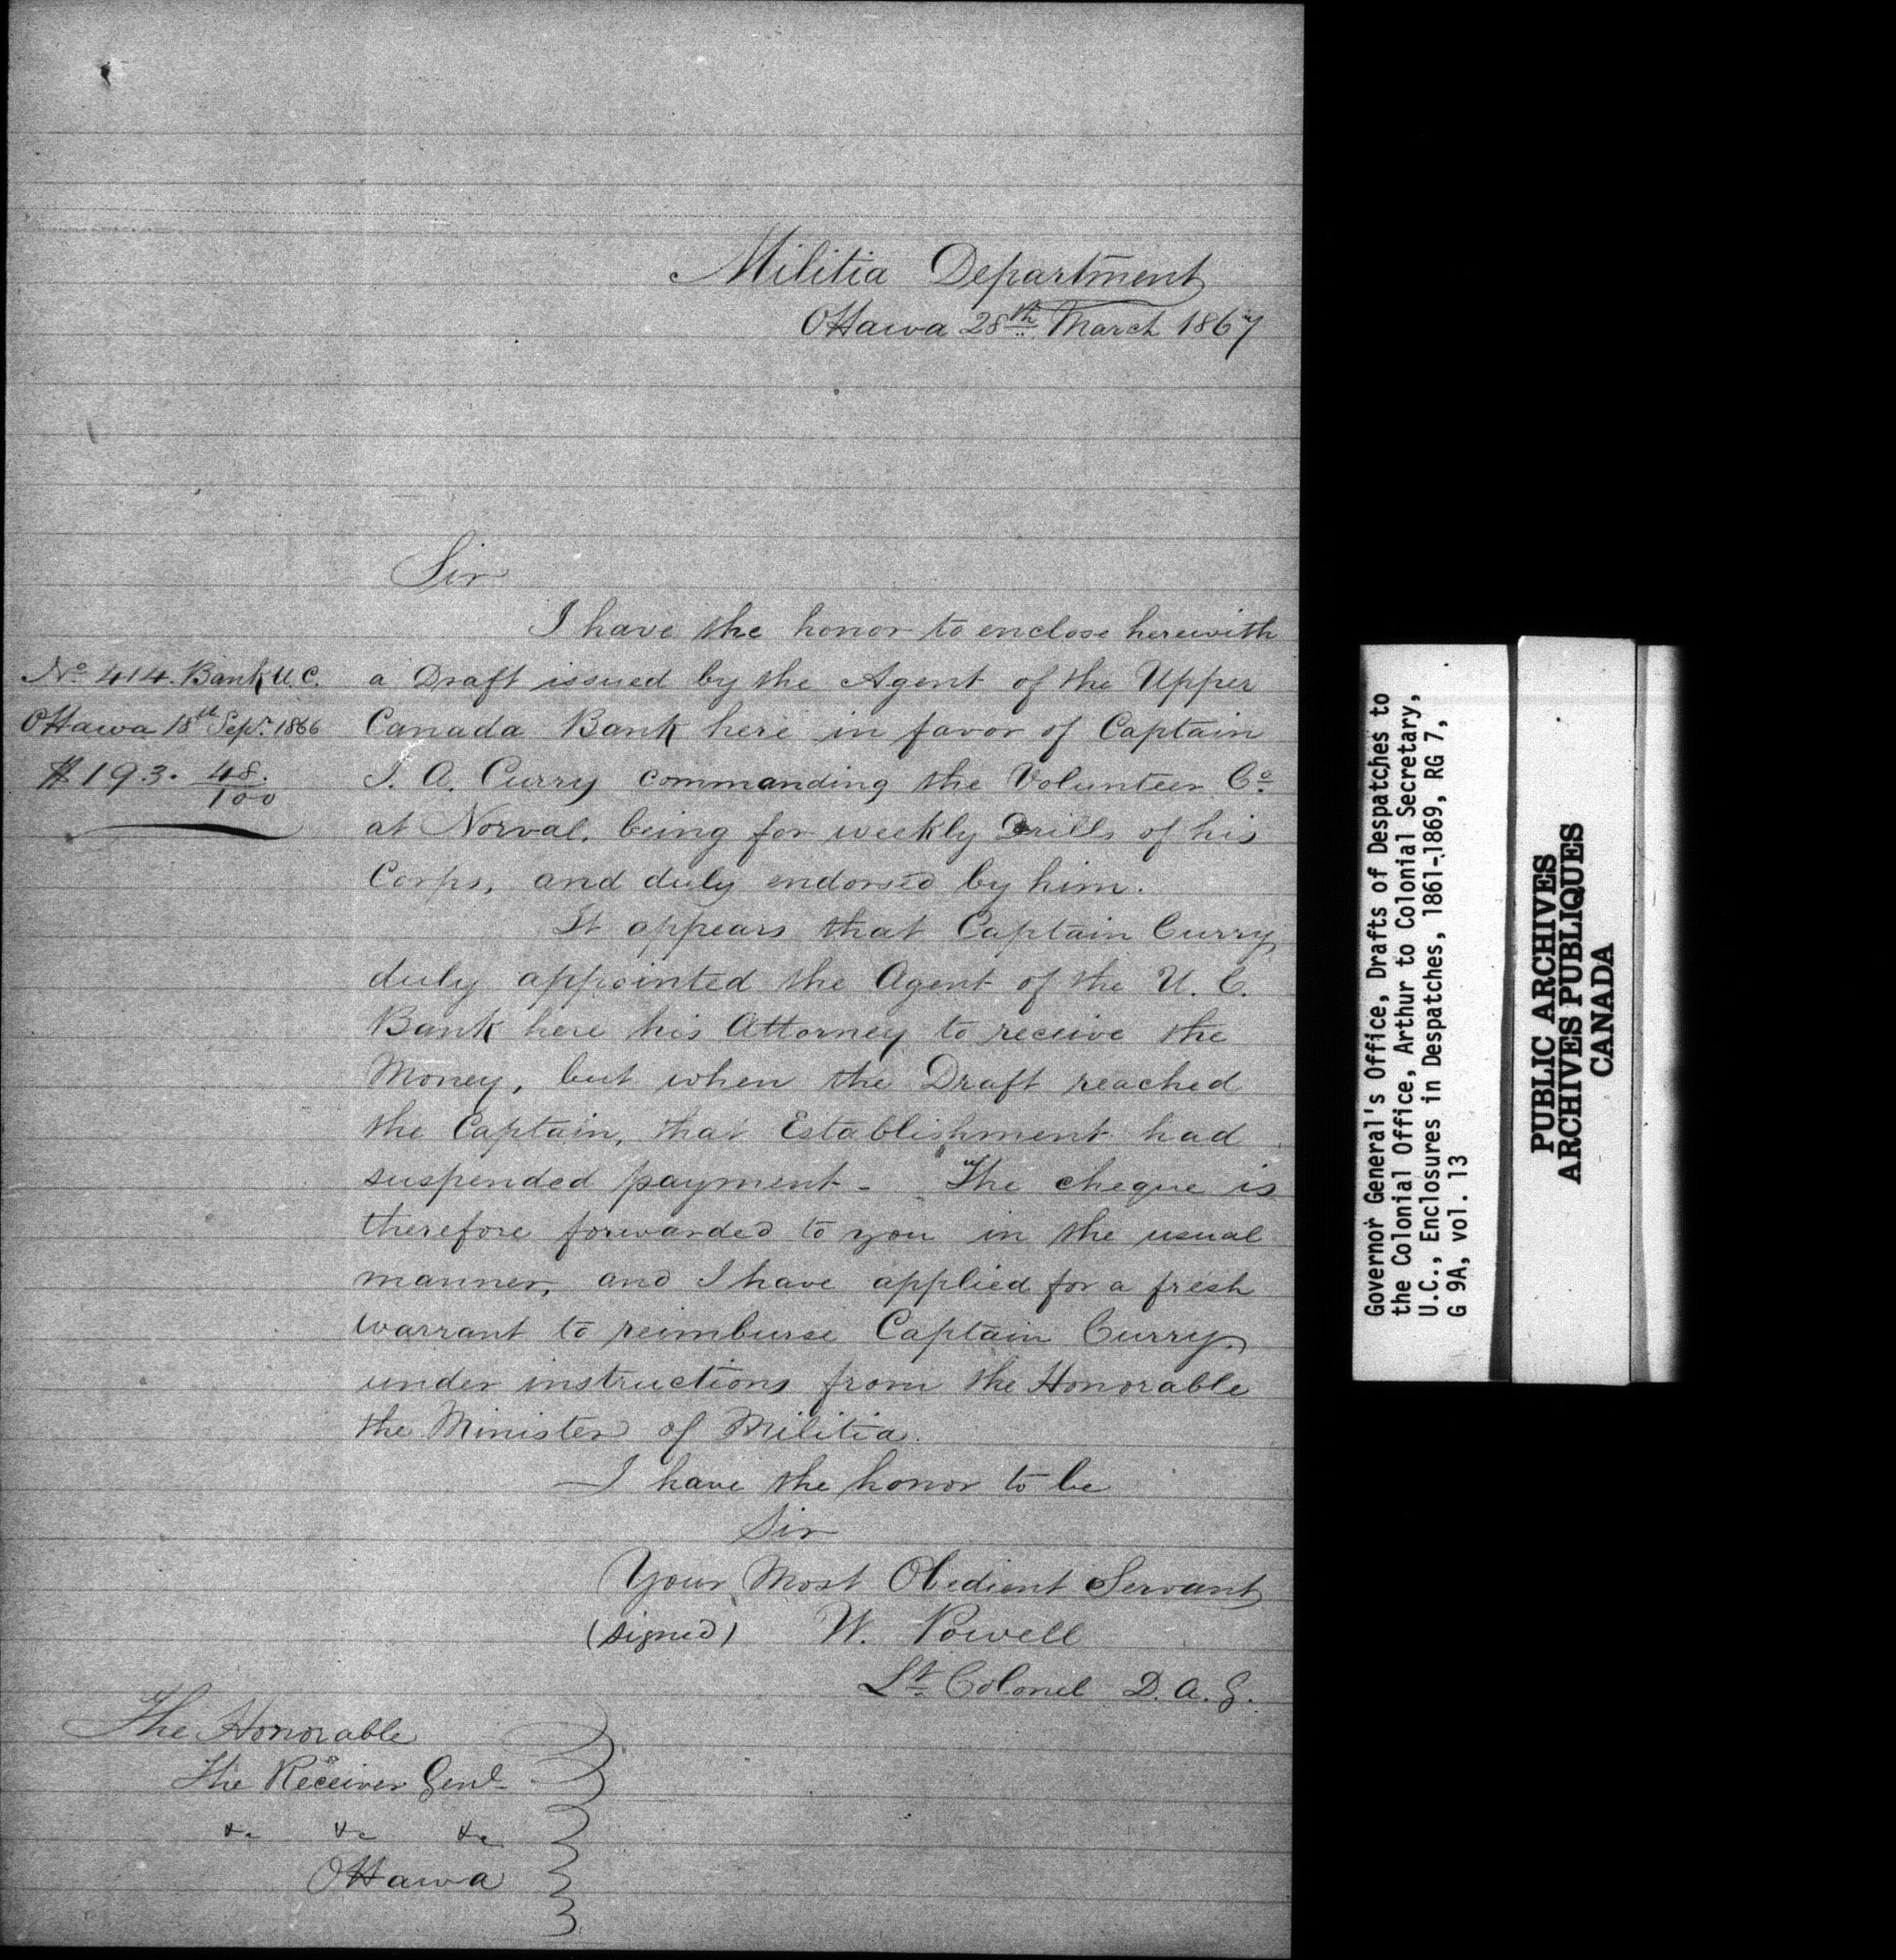 Militia Department
Ottawa 28th March 1867
Sir
I have the honor to enclose herewith
No 414. Bank U.C.
Ottawa 18th Sepr. 1866
$193. 48/100
a Draft issued by the Agent of the Upper
Canada Bank here in favor of Captain
J. A. Curry commanding the Volunteer Co.
at Norval, being for weekly Drills of his
Corps, and duly endorsed by him.
It appears that Captain Curry
duly appointed the Agent of the U. C.
Bank here his Attorney to receive the
Money, but when the Draft reached
the Captain, that Establishment had
suspended payment - The cheque is
therefore forwarded to you in the usual
manner, and I have applied for a fresh
warrant to reimburse Captain Curry,
under instructions from the Honorable
the Minister of Militia.
I have the honor to be
Sir
Your Most Obedient Servant
(signed) W. Powell
Lt. Colonel D. A. G.
The Honorable
The Receiver Genl.
&c &c &c
Ottawa
Governor General's Office, Drafts of Despatches to
the Colonial Office, Arthur to Colonial Secretary,
U.C., Enclosures in Despatches, 1861-1869, RG 7,
G 9A, vol. 13
PUBLIC ARCHIVES
ARCHIVES PUBLIQUES
CANADA